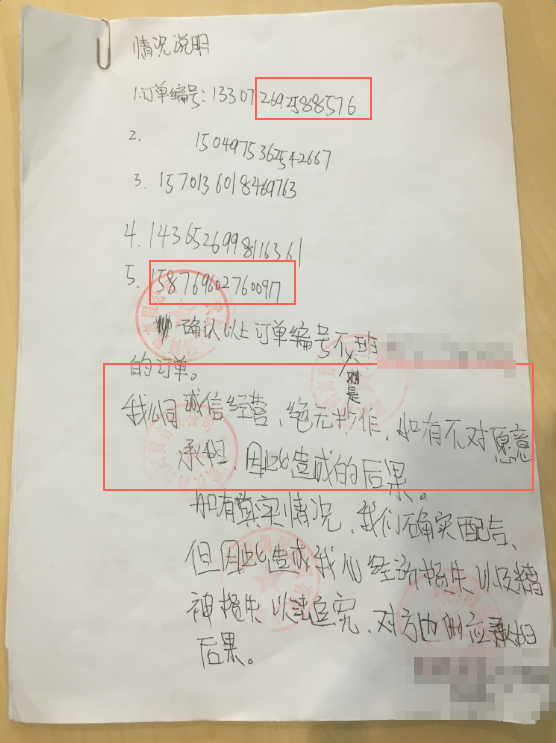 情况说明
1.订单编号:133072692588576
2. 1504975362542667
3. 1570136018469763
4. 1436526998116361
5. 1587696027600917
确认以上订单编号不
是
的订单。
我公司诚信经营、绝无 作、如有不对愿意
承担、因此造成的后果。
如有 情况、我们确实配合、
但因此造成我 经济损失以及精
神损失以 追究、对方也 应承担
后果。